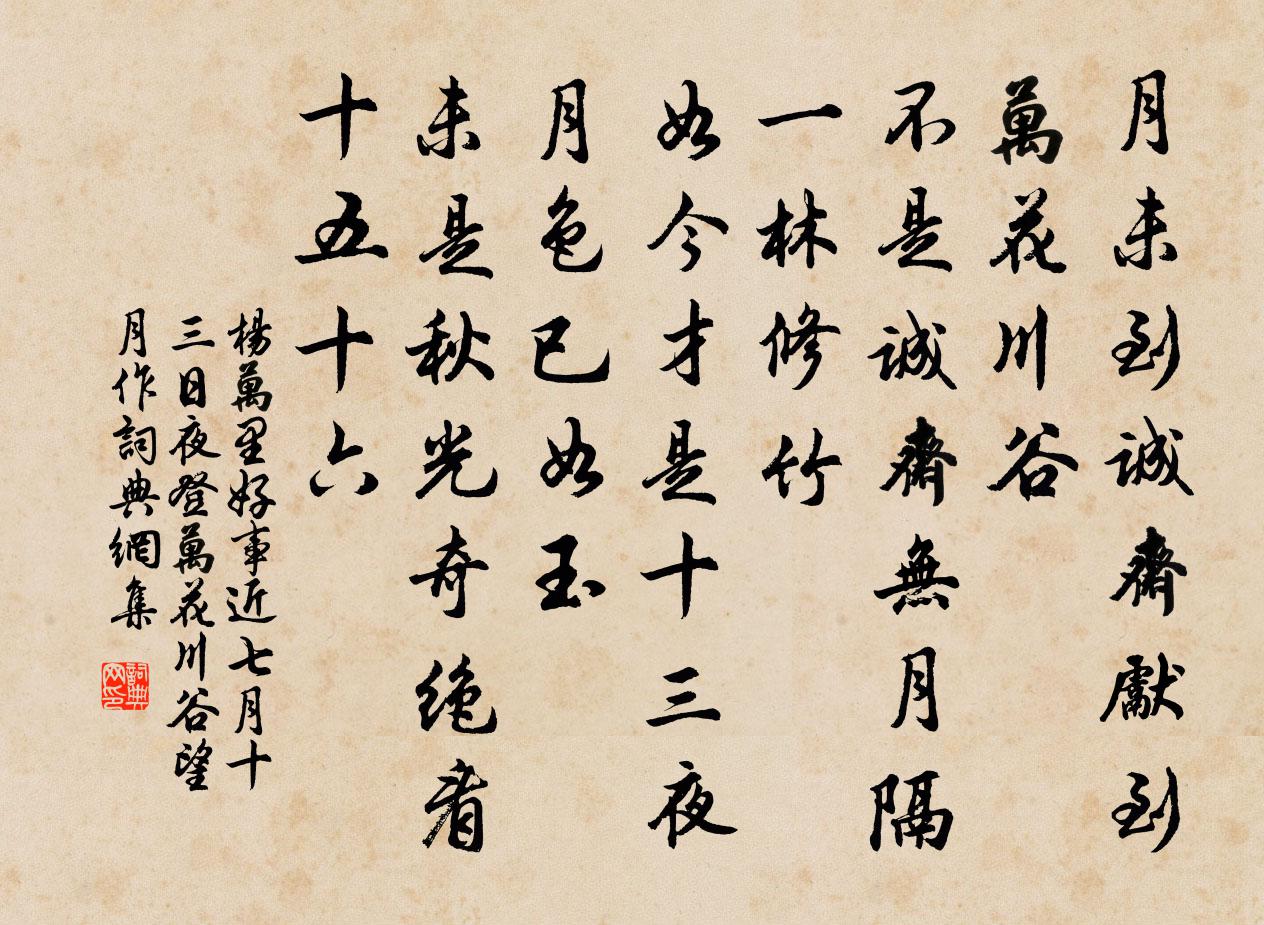 月未到誠齋獻到
萬花川谷
不是誠齋無月隔
一林修竹
如今才是十三夜
月色已如玉
未是秋光奇絕看
十五十六
楊萬里好事近七月十
三日夜登萬花川谷望
月作詞典網集
詞典
网印